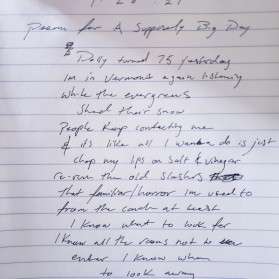 1·20·21
Poem for A Supposedly Big Day
Dolly turned 75 yesterday
Im in Vermont again listening
while the evergreens
shed their snow
People keep contacting me
& its like all I wanna do is just
chap my lips on salt & vinegar
re-run the old slashers
that familiar/horror Im used to
from the couch at least
I know what to look for
I know all the rooms not to
enter I know when
to look away